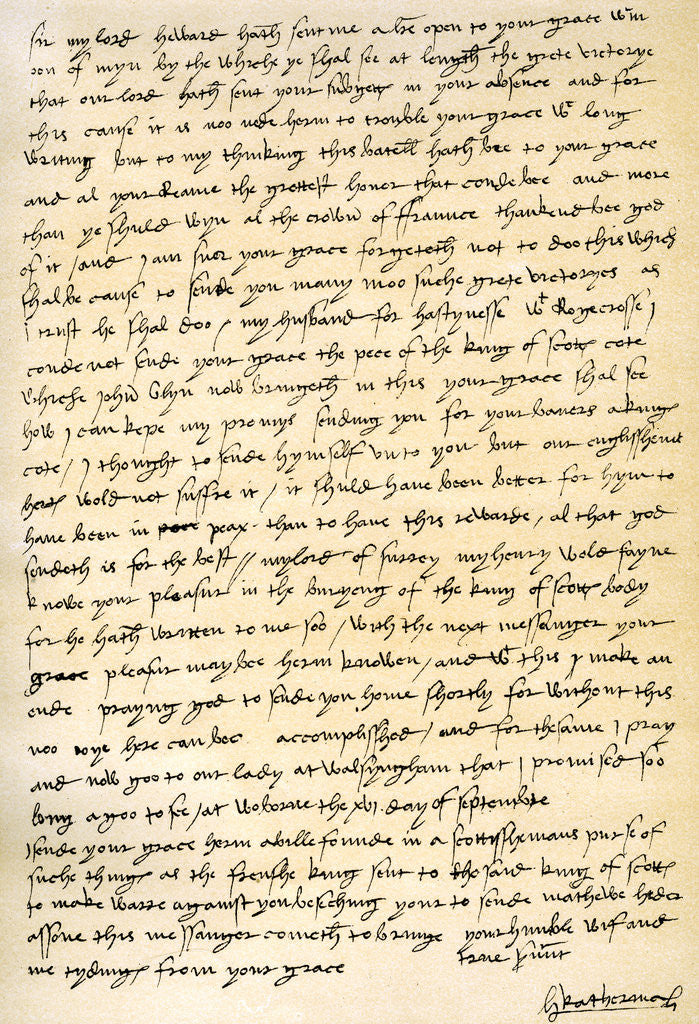 Sir my lord heward hath sent me a lre open to your grace wtin
oon of myn by the whiche ye shal see at length the grete victorye
that our lord hath sent your subgett in your absence and for
this cause it is noo nede herin to trouble your grace wt long
writing but to my thinking this batell hath bee to your grace
and al your Reame the grettest honor that coude bee and more
than ye shuld wyn al the crown of ffraunce thankend bee god
of it / and I am suer your grace forgeteth not to doo this which
shal be cause to sende you many moo suche grete victoryes as
I trust he shal doo / my husband for hastynesse wt Rogecrosse I
coude not sende your grace the pece of the king of scotts cote
whiche John Glyn now bringeth in this your grace shal see
how I can kepe my promys sending you for your baners a kings
cote / I thought to sende hymself vnto you but our englisshemens
herts wold not suffre it / it shuld have been better for hym to
have been in peax than to have this rewarde / al that god
sendeth is for the best // my lord of surrey my henry wold fayne
knowe your pleasur in the buryeng of the king of scotts body
for he hath written to me soo / with the next messanger your
grace pleasur may bee herin knowen / and wt this I make an
ende praying god to sende you home shortly for without this
noo Joye here can bee accomplisshed / and for the same I pray
and now goo to our lady at walsyngham that I promised soo
long agoo to see / at woborne the xvi day of septembre
I sende your grace herin a bille founde in a scottisshemans purse of
suche things as the frenshe king sent to the said king of scotts
to make warre against you beseching your to sende mathewe heder
assone this messanger cometh to bringe your humble wif and
me tydings from your grace true svnt
Katherina